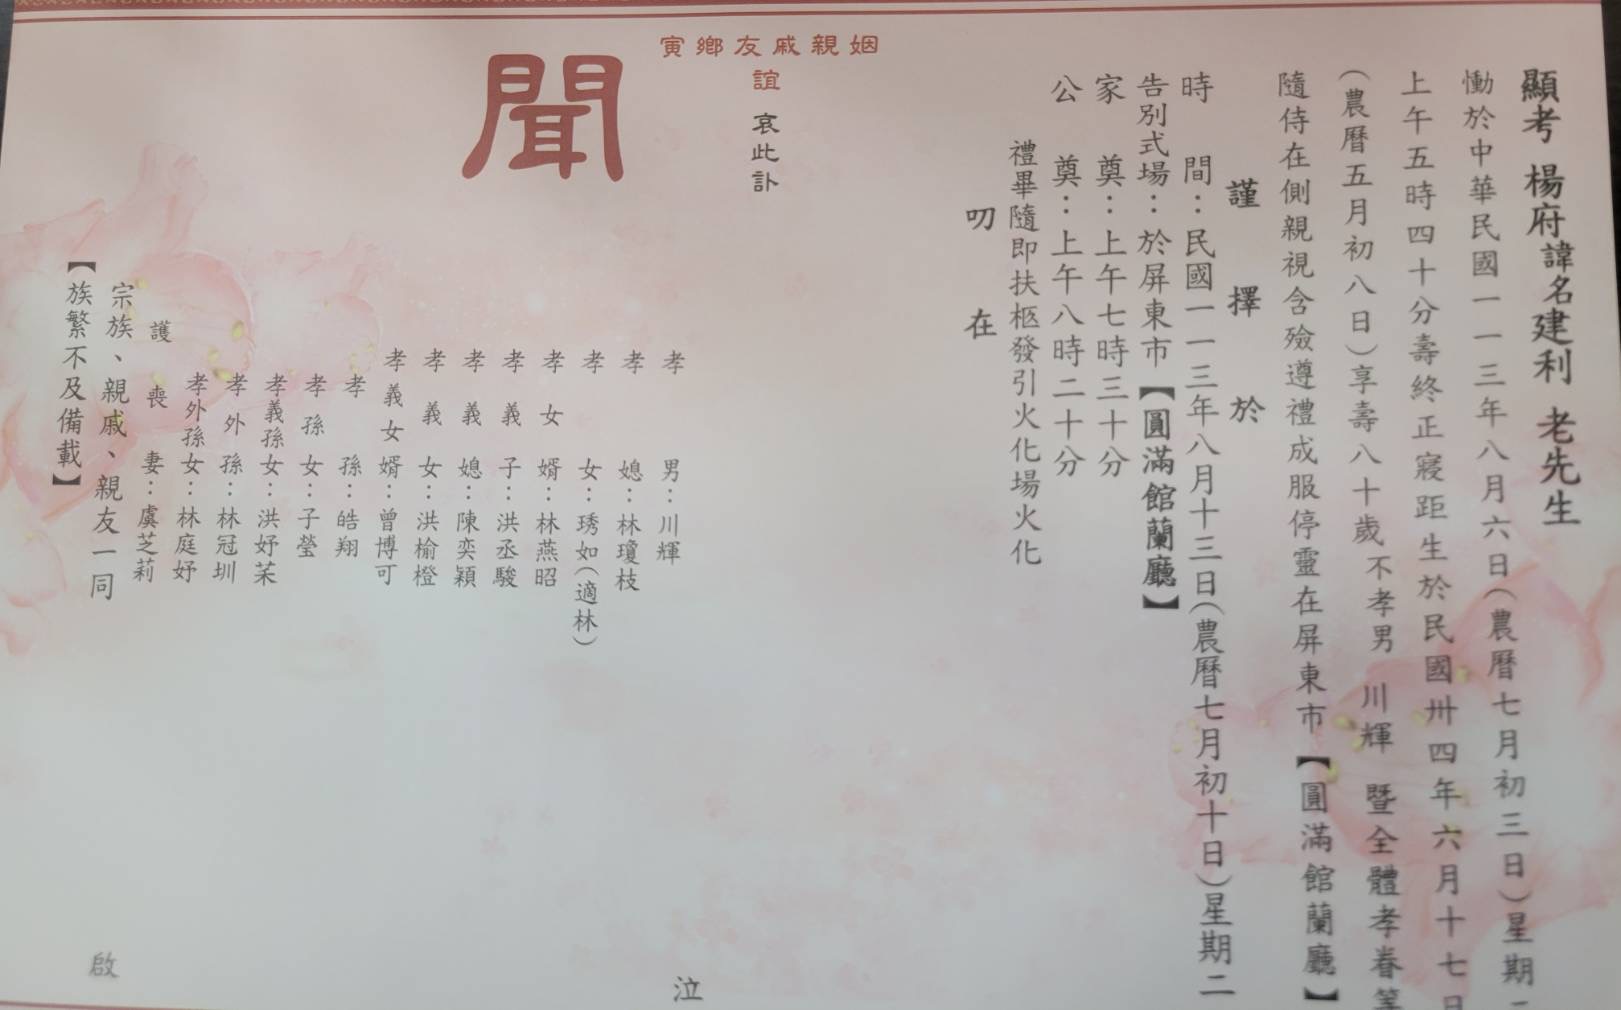 顯考 楊府諱名建利 老先生
慟於中華民國一一三年八月六日(農曆七月初三日)星期二
上午五時四十分壽終正寢距生於民國卅四年六月十七日
(農曆五月初八日)享壽八十歲不孝男 川輝 暨全體孝眷等
隨侍在側親視含殮遵禮成服停靈在屏東市【圓滿館蘭廳】
謹擇於
時間:民國一一三年八月十三日(農曆七月初十日)星期二
告別式場:於屏東市【圓滿館蘭廳】
家奠:上午七時三十分
公奠:上午八時二十分
禮畢隨即扶柩發引火化場火化
叨在
寅鄉友戚親姻
誼 哀此訃
聞
孝男:川輝
孝媳:林瓊枝
孝女:琇如(適林)
孝女婿:林燕昭
孝義子:洪丞駿
孝義媳:陳奕穎
孝義女:洪榆橙
孝義女婿:曾博可
孝孫:皓翔
孝孫女:子瑩
孝義孫女:洪妤茉
孝外孫:林冠圳
孝外孫女:林庭妤
護喪妻:虞芝莉
宗族、親戚、親友一同
【族繁不及備載】
泣
啟